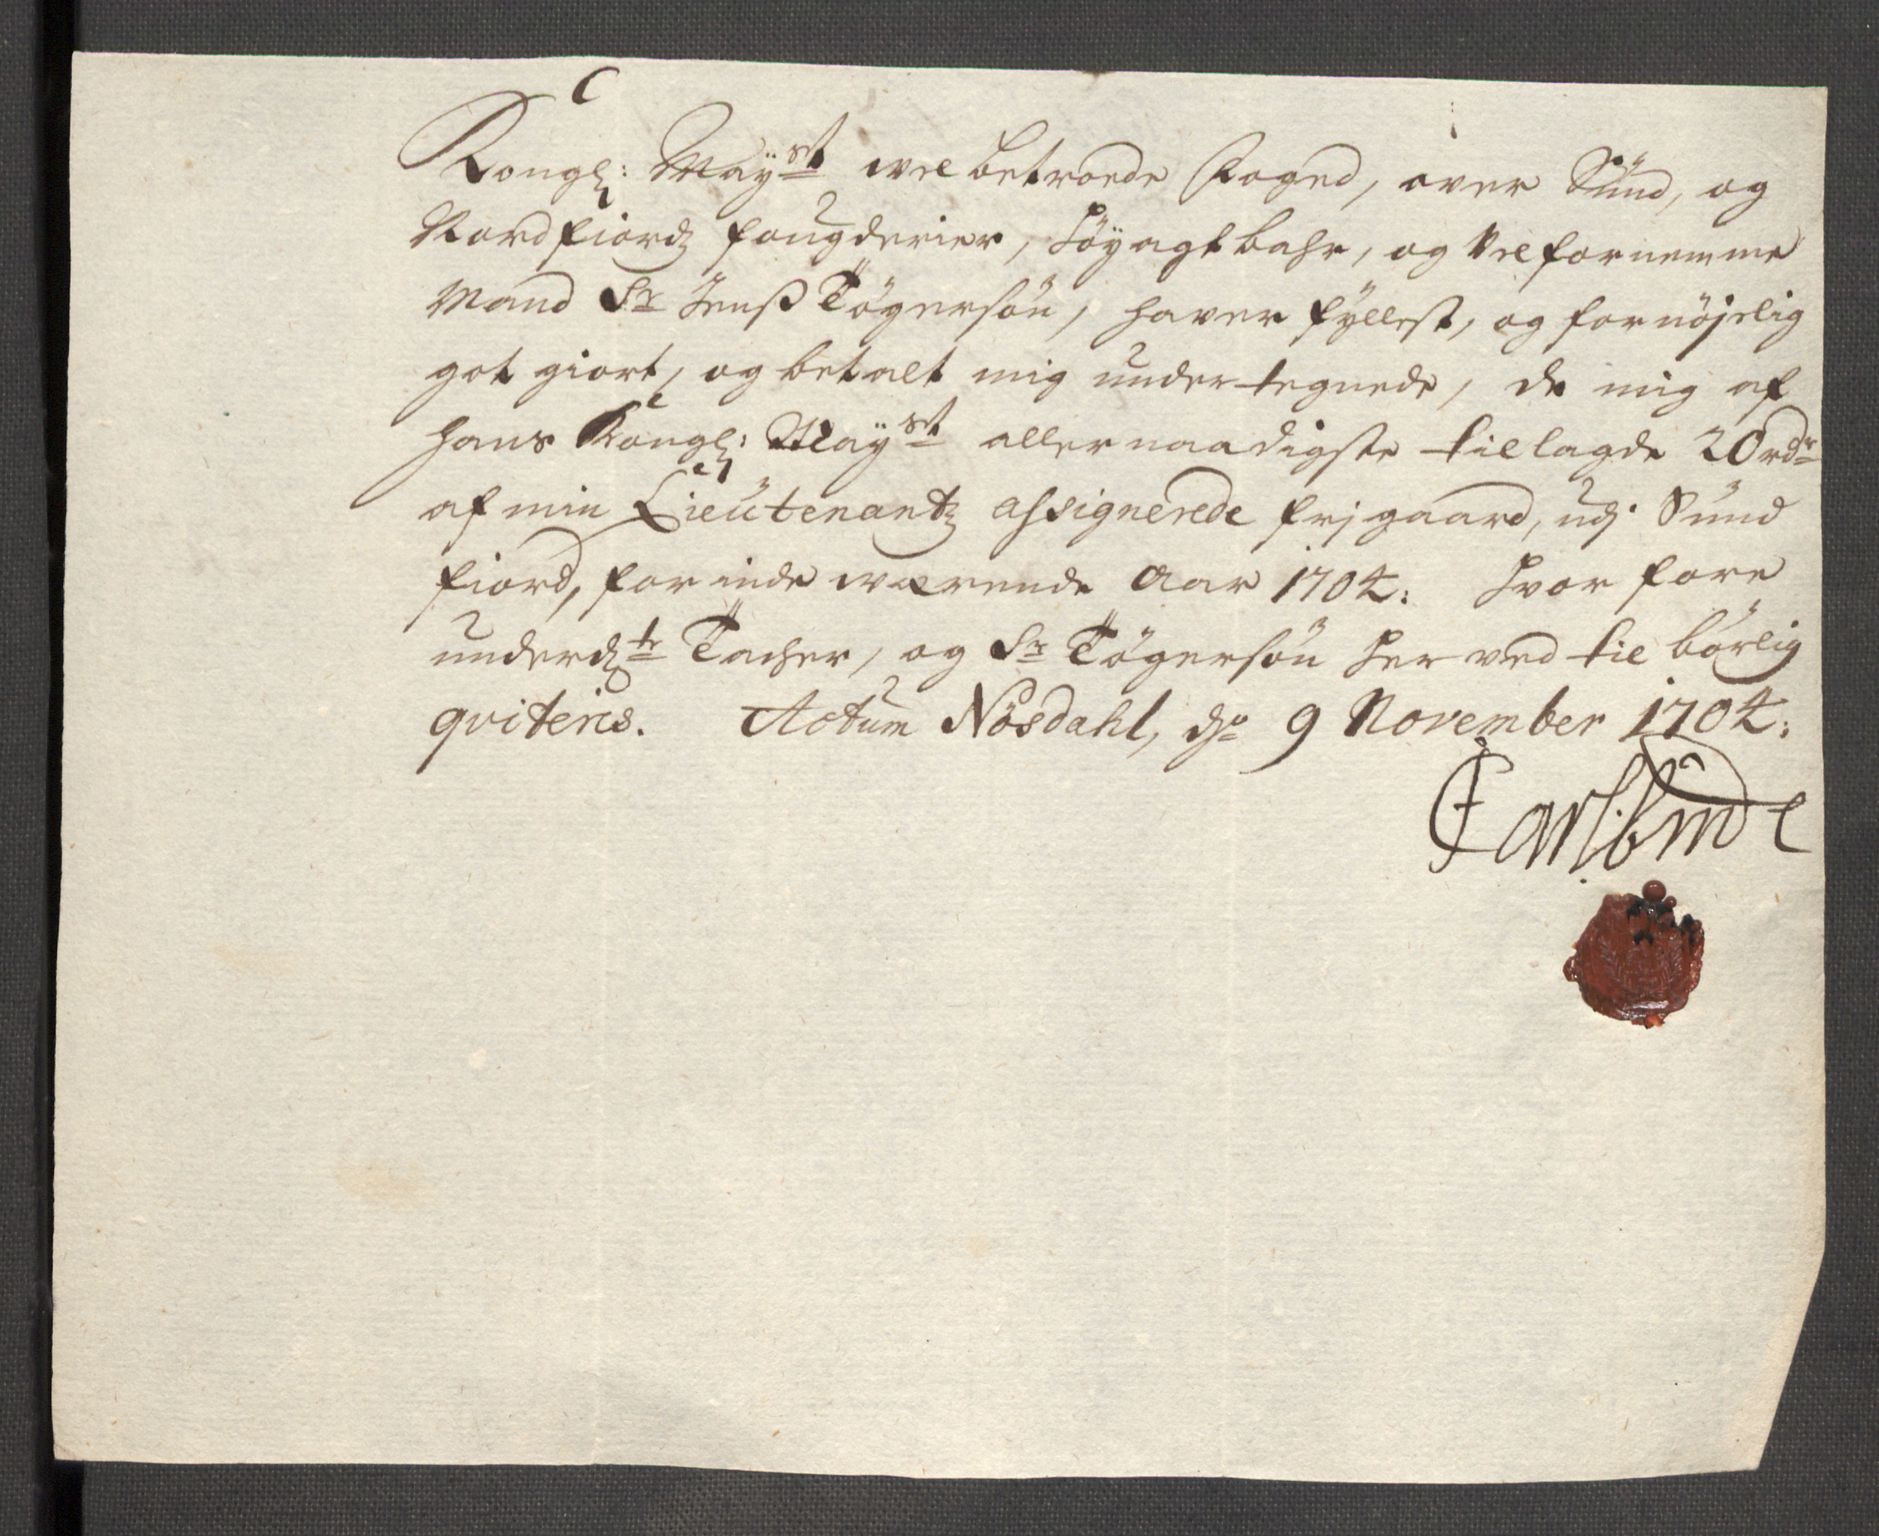 Kongl: Mayst vel betroede Foged, over Sünd, og
Nordfiordz fougderier, Höyagtbahr, og Velfornemme
Mand Sr Jenß Tögersön, haver fyllest, og fornöjelig
got giort, og betalt mig under tegnede, de mig af
hans Kongl: Mayst allernaadigste tillagde 20 rdr
af min Lieütenantz assignerede frj gaard, udj Sünd
fiord, for inde værende Aar 1704: Hvor fore
underdtr Tacher, og Sr Tögersön her ved til börlig
qviteris. Actum Nösdahl, dn 9 November 1704: